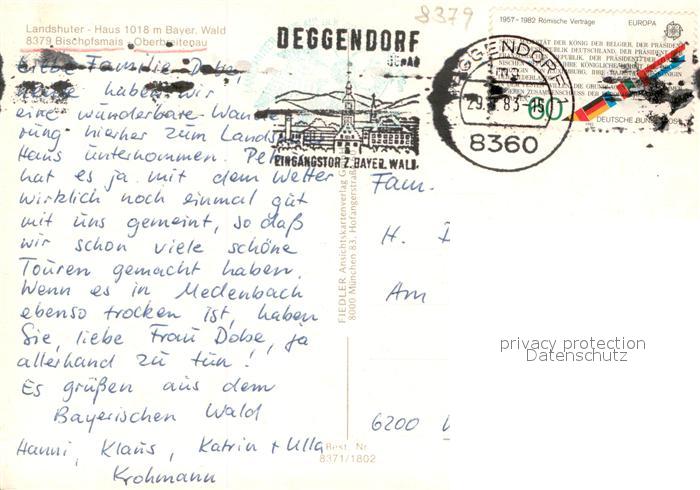 Landshuter - Haus 1018 m Bayer. Wald
8379 Bischofsmais - Oberbreitenau
8379
Liebe Familie Dobe,
heute haben wir
eine wunderbare Wande-
rung hierher zum Landsh.
Haus unternommen.
hat es ja mit dem Wetter
wirklich noch einmal gut
mit uns gemeint, so daß
wir schon viele schöne
Touren gemacht haben.
Wenn es in Medenbach
ebenso trocken ist, haben
Sie, liebe Frau Dobe, ja
allerhand zu tun!
Es grüßen aus dem
Bayerischen Wald
Hanni, Klaus, Katrin + Ulla
Krohmann
DEGGENDORF
DONAU
EINGANGSTOR Z. BAYER. WALD
FIEDLER Ansichtskartenverlag G
8000 München 83, Hofangerstraße
Best. Nr.
8371/1802
1957-1982 Römische Verträge EUROPA
60
DEUTSCHE BUNDESPOST
DEGGENDORF
83-15
8360
Fam.
H.
Am
6200
privacy protection
Datenschutz